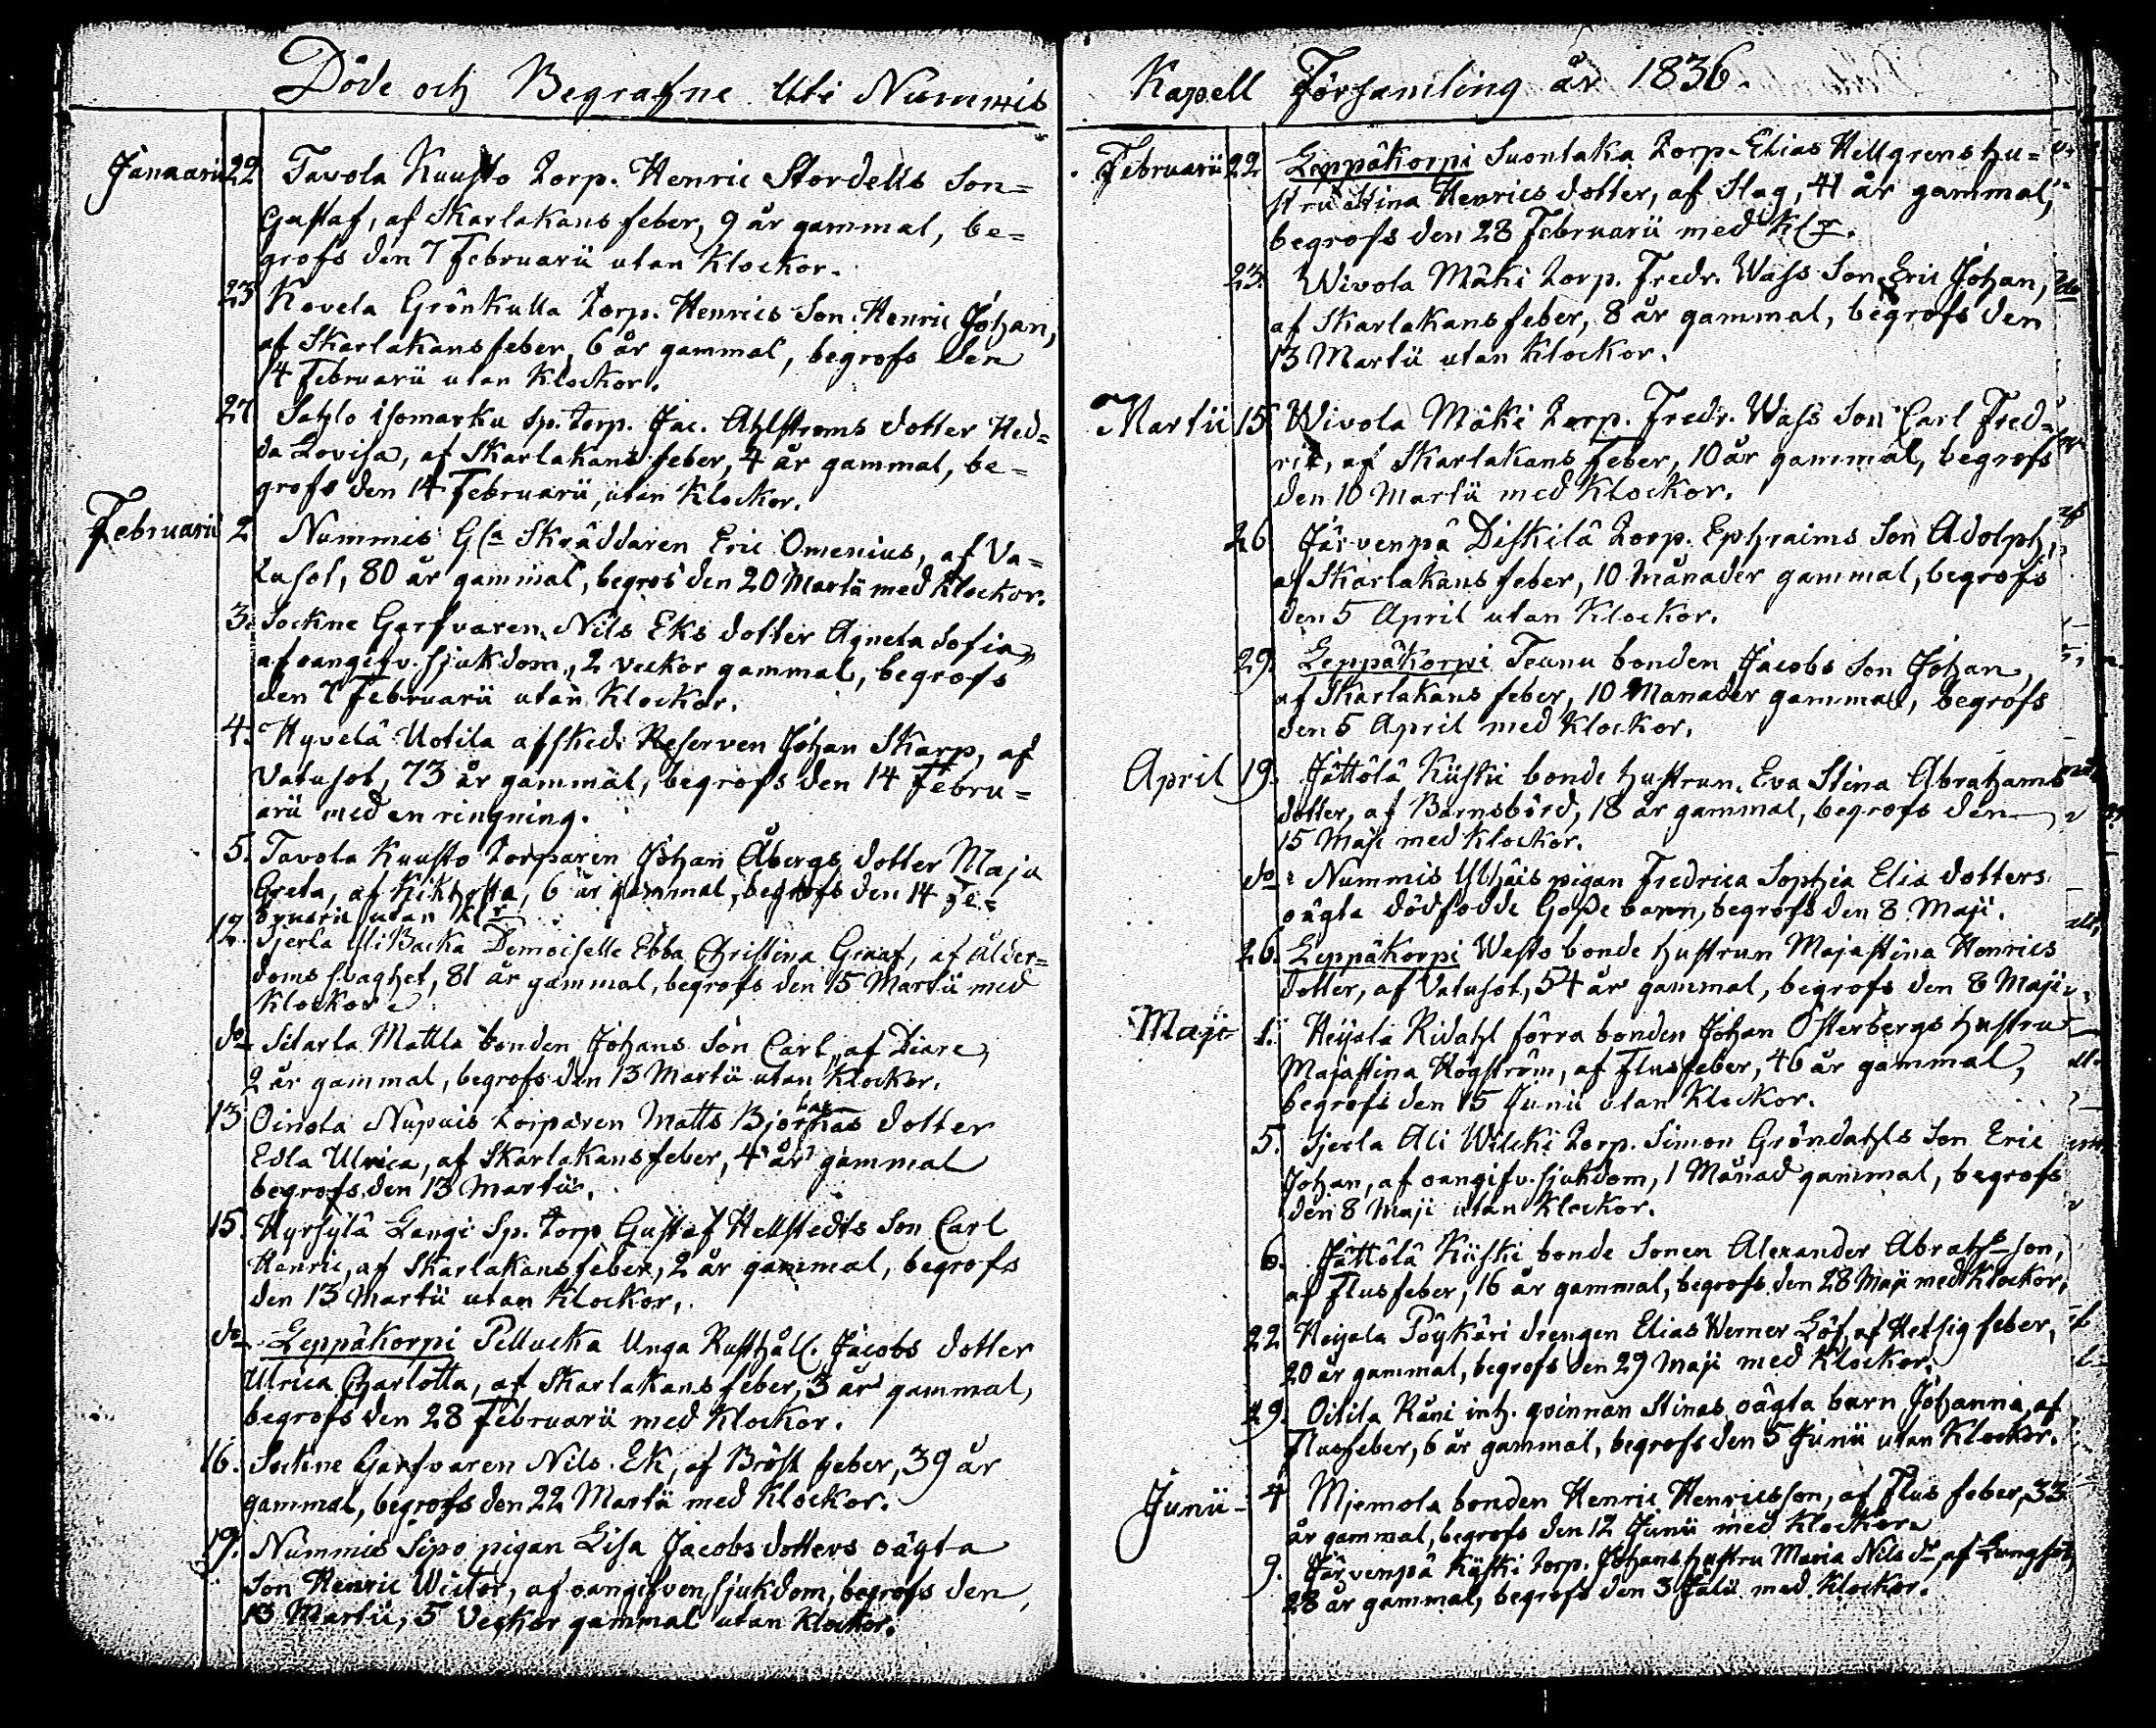 Döde och Begrafne Uti Nummis
Januarii 22 Tavola Kuusto Torp. Henric Stordells Son
Gustaf, af Skarlakansfeber, 9 år gammal, be=
grofs den 7 Februarii utan Klockor.
23 Kovela Grönkulla Torp. Henrics Son Henric Johan,
af Skarlakansfeber, 6 år gammal, begrofs den
14 Februarii utan Klockor.
27 Sahlo isomarku sp. torp. Jac. Ahlstroms dotter Hed=
da Lovisa, af Skarlakansfeber, 4 år gammal, be=
grofs den 14 Februarii, utan Klockor.
Februarii 2 Nummis Skräddaren Eric Omenius, af Va=
tusot, 80 år gammal, begrofs den 20 Martii med Klockor.
3. Sockne Garfvaren Nils Eks dotter Agneta Sofia,
af oangifv. sjukdom, 2 veckor gammal, begrofs
den 7 Februarii utan Klockor.
4. Hyvelä Uotila afsked. Reserven Johan Skarp, af
Vatusot, 73 år gammal, begrofs den 14 Febru=
arii med en ringning.
5. Tavola Kuusto Torparen Johan Åbergs dotter Maja
Greta, af Kikhosta, 6 år gammal, begrofs den 14 Fe=
bruarii utan Klr
12. Sjerla Backa Demoiselle Ebba Christina Graaf, af Ålder=
doms svaghet, 81 år gammal, begrofs den 15 Martii med
Klockor
do Sitarla Mattla bonden Johans Son Carl, af Diare,
2 år gammal, begrofs den 13 Martii utan Klockor.
13 Oinola Nupais torparen Matts dotter
Edla Ulrica, af Skarlakansfeber, 4 år gammal
begrofs den 13 Martii.
15. Hyrsylä Langi Sp. torp Gustaf Hellstedts Son Carl
Henric, af Skarlakansfeber, 2 år gammal, begrofs
den 13 Martii utan Klockor.
do Leppäkorpi Pellucka Unga Rusthåll. Jacobs dotter
Ulrica Charlotta, af Skarlakansfeber, 3 år gammal,
begrofs den 28 Februarii med Klockor.
16. Sockne Garfvaren Nils Ek, af Bröst feber, 39 år
gammal, begrofs den 22 Martii med Klockor.
19. Nummis Sipo pigan Lisa Jacobsdotters oägta
Son Henric Wictor, af oangifven sjukdom, begrofs den
13 Martii, 5 Veckor gammal utan Klockor.
Kapell Församling år 1836.
Februarii 22 Leppäkorpi Suontaka Torp. Elias Hellgrens hu=
stru Stina Henrics dotter, af Slag, 41 år gammal,
begrofs den 28 Februarii med Klr.
23. Wivola Mäki Torp. Fredr. Wass Son Eric Johan,
af Skarlakansfeber, 8 år gammal, begrofs den
13 Martii utan Klockor.
Martii 15 Wivola Mäki Torp. Fredr. Wass Son Carl Fred=
rik, af Skarlakans feber, 10 år gammal, begrofs
den 10 Martii med Klockor.
26 Järvenpä Diskilä Torp. Ephraims Son Adolph,
af Skarlakans feber, 10 månader gammal, begrofs
den 5 April utan Klockor.
29. Leppäkorpi Teunu bonden Jacobs Son Johan,
af Skarlakans feber, 10 Månader gammal, begrofs
den 5 April med Klockor.
April 19. Jättölä Kiiski bonde hustrun Eva Stina Abrahams
dotter, af Barnsbörd, 18 år gammal, begrofs den
15 Maji med Klockor.
do Nummis pigan Fredrica Sophia Elia dotters
oägta dödfödde Gosse barn, begrofs den 8 Maji.
26. Leppäkorpi Westo bonde hustrun Majastina Henrics
dotter, af Vatusot, 54 år gammal, begrofs den 8 Maji
Maji 1. Heijala Ridahl förra bonden Johan Österbergs hustru
Majastina Högström, af Flusfeber, 46 år gammal,
begrofs den 15 Junii utan Klockor.
5. Sjerla Ali Wilcki Torp. Simon Gröndahls Son Eric
Johan, af oangifv. sjukdom, 1 Månad gammal, begrofs
den 8 Maji utan Klockor.
6. Jättölä Kiiski bonde Sonen Alexander Abrahson,
af Flusfeber, 16 år gammal, begrofs den 28 Maji med Klockor,
22 Heijala Pöykäri drengen Elias Werner Löf, af Hetsig feber,
20 år gammal, begrofs den 29 Maji med Klockor.
29. Oitila Räni inh. qvinnan Stinas oägta barn Johanna, af
Flusfeber, 6 år gammal, begrofs den 5 Junii utan Klockor.
Junii 4 Mjemola bonden Henric Henricsson, af Flus feber, 33
år gammal, begrofs den 12 Junii med Klockor
9. Järvenpä Kaski Torp. Johans hustru Maria Nils dr, af Lungsot,
28 år gammal, begrofs den 3 Julii med Klockor.